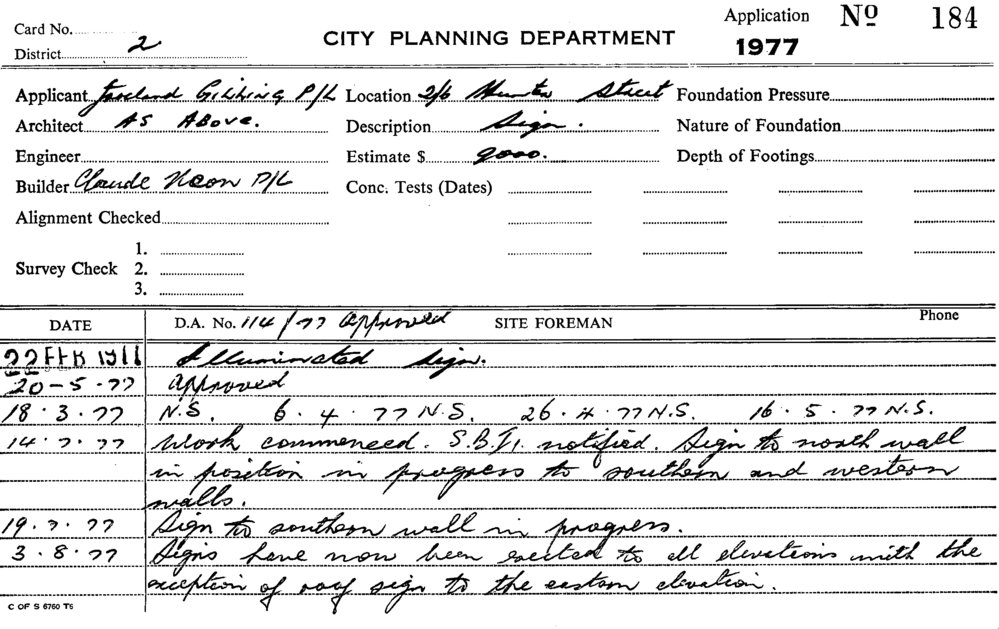 Card No.
District 2
CITY PLANNING DEPARTMENT
Application Nº 184
1977
Applicant P/L Location 2/6 Hunter Street Foundation Pressure
Architect AS ABOVE. Description Sign. Nature of Foundation
Engineer Estimate $ 9000. Depth of Footings
Builder Claude Neon P/L Conc. Tests (Dates)
Alignment Checked
1.
Survey Check 2.
3.
DATE D.A. No. 114/77 Approved SITE FOREMAN Phone
22 FEB Illuminated Sign.
20-5-77 Approved
18.3.77 N.S. 6.4.77 N.S. 26.4.77 N.S. 16.5.77 N.S.
14.7.77 Work commenced. notified. Sign to north wall
in position in progress to southern and western
walls.
19.7.77 Sign to southern wall in progress.
3.8.77 Signs have now been erected to all elevations with the
exception of roof sign to the eastern elevation.
C OF S 6760 T6